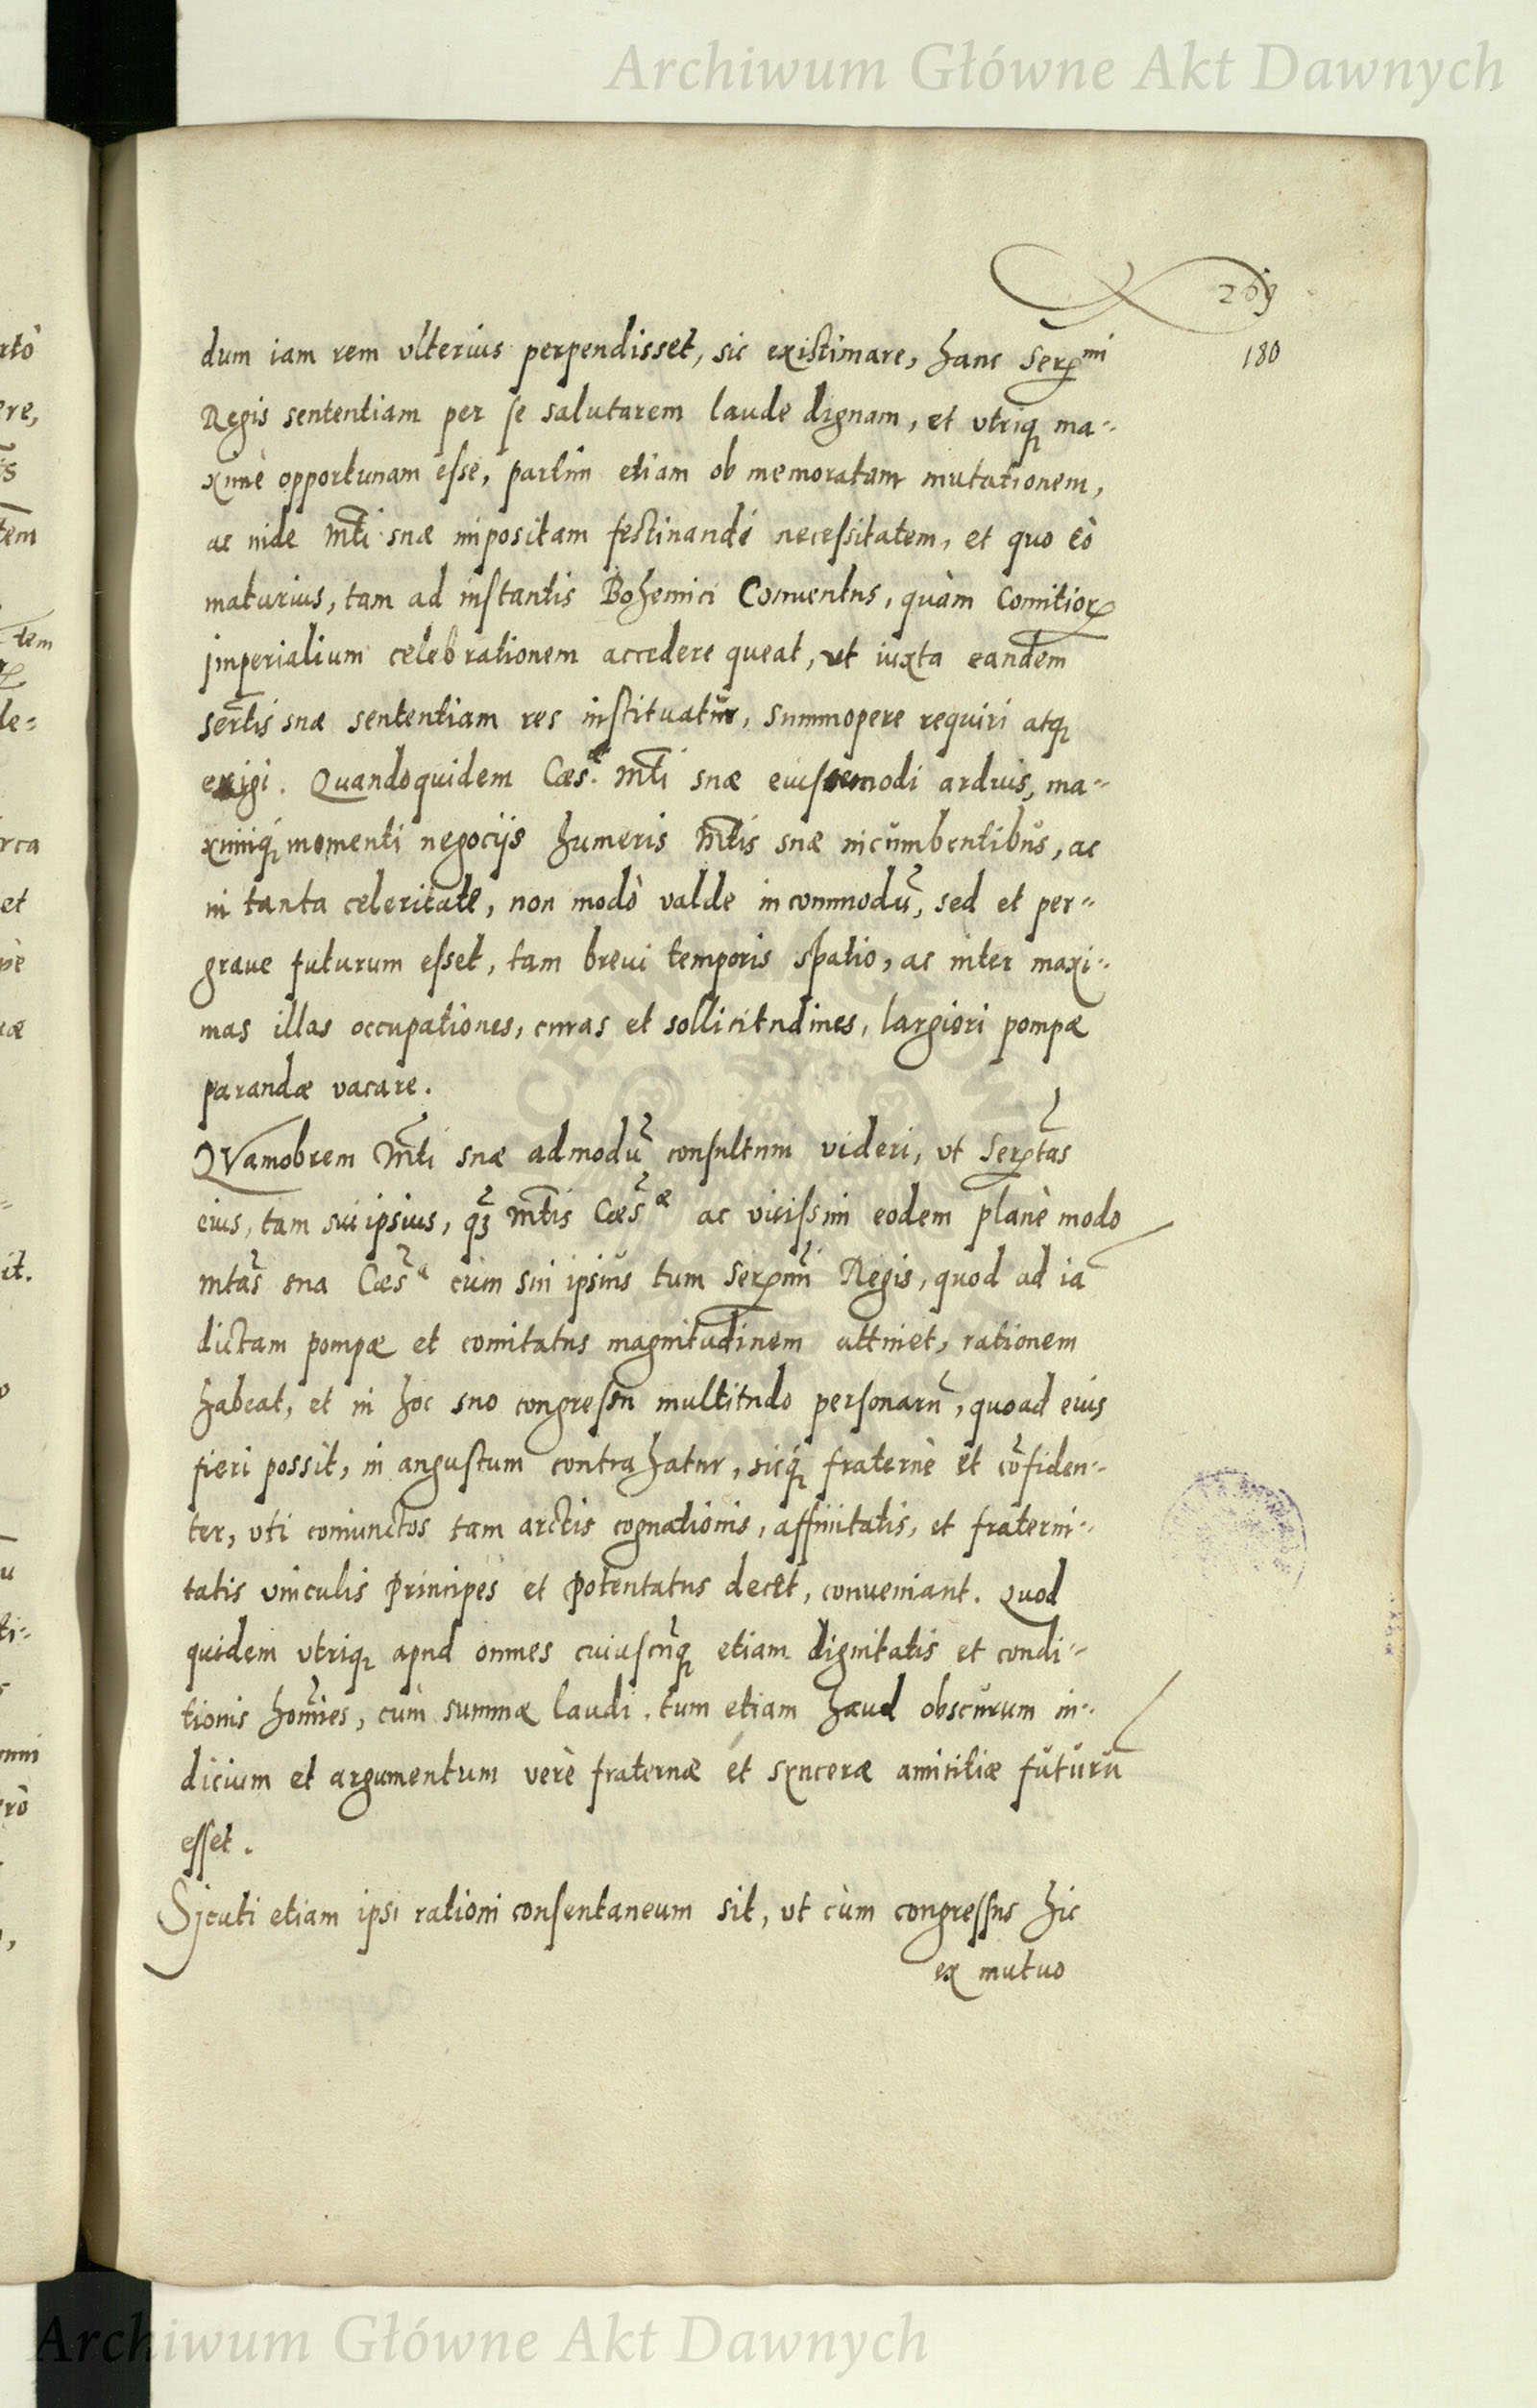 Archiwum Główne Akt Dawnych
269
180
dum iam rem vlterius perpendisset, sic existimare, hanc Serᵐⁱ
Regis sententiam per se salutarem laude dignam, et vtriq ma-
ximè opportunam esse, partim etiam ob memoratam mutationem,
ac inde Mti suæ impositam festinandi necessitatem, et quo eò
maturius, tam ad instantis Bohemici Conuentus, quàm Comitior
imperialium celebrationem accedere queat, vt iuxta eandem
sertis suæ sententiam res instituatur, summopere requiri atq
exigi. Quandoquidem Cæs. Mti suæ eiuscemodi arduis, ma-
ximiq momenti negocijs humeris Mtis suæ incumbentibus, ac
in tanta celeritate, non modò valde incommodū, sed et per-
graue futurum esset, tam breui temporis spatio, ac inter maxi-
mas illas occupationes, curas et sollicitudines, largiori pompæ
parandæ vacare.
QVamobrem Mti suæ admodū consultum videri, vt Sertas
eius, tam sui ipsius, q3 Mtis Cæsᵃᵉ ac vicissim eodem planè modo
Mtas sua Cæsᵃ cùm sui ipsius tum Sermi Regis, quod ad iā
dictam pompæ et comitatus magnitudinem attinet, rationem
habeat, et in hoc suo congressu multitudo personarū, quoad eius
fieri possit, in angustum contrahatur, sicq fraternè et cōfiden-
ter, vti coniunctos tam arctis cognationis, affinitatis, et fraterni-
tatis vinculis Principes et Potentatus decet, conueniant. Quod
quidem vtriq apud omnes cuiuscūq etiam dignitatis et condi-
tionis homīes, cùm summæ laudi, tum etiam haud obscurum in-
dicium et argumentum verè fraternæ et synceræ amicitiæ futurū
esset.
Sicuti etiam ipsi rationi consentaneum sit, vt cùm congressus hic
ex mutuo
Archiwum Główne Akt Dawnych